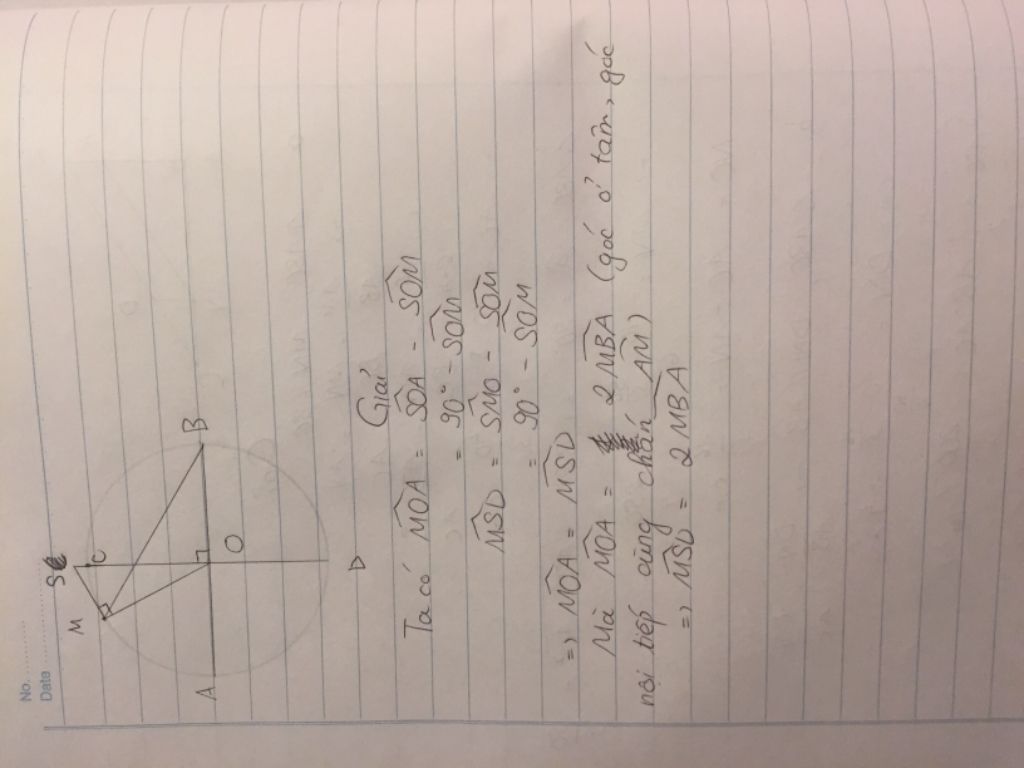 No.
Date
S C
M
B
A
O
D
Giải
Ta có MOA = SOA - SOM
= 90° - SOM
MSD = SMO - SOM
= 90° - SOM
=> MOA = MSD
Mà MOA = 2 MBA (góc ở tâm, góc
nội tiếp cùng chắn AM)
=> MSD = 2 MBA